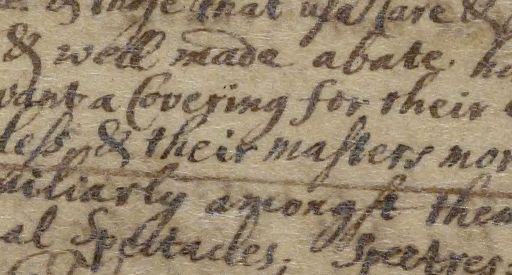 & those that use Care &
& well made abate. ha
want a Covering for their
less & their masters mor
miliarly amongst them
al Spectacles; Spectres